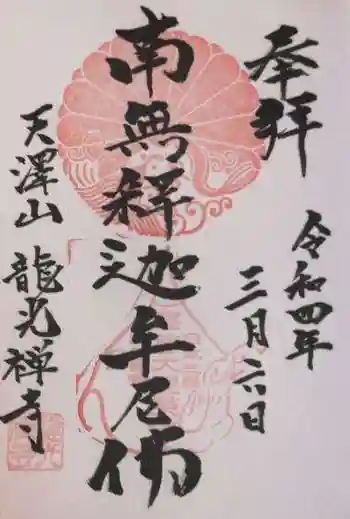 奉拝
令和四年
三月六日
南無釋迦牟尼佛
天澤山
龍光禅寺